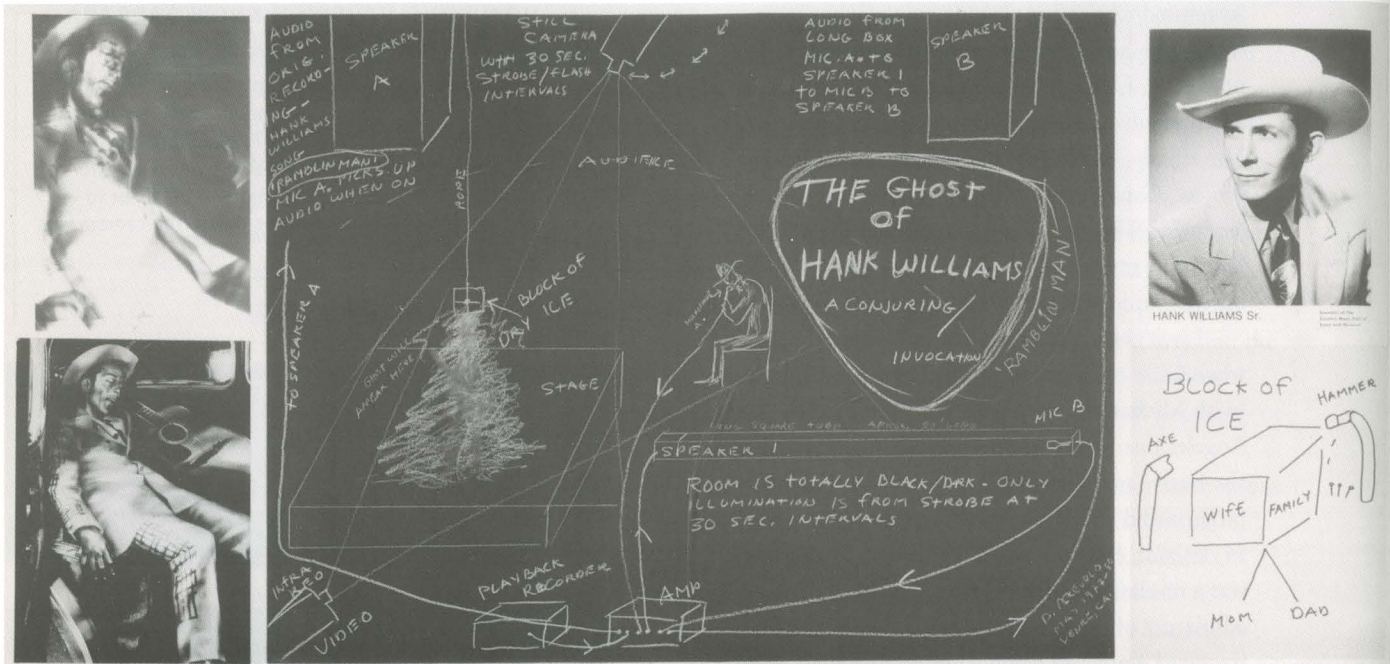 AUDIO
FROM
ORIG.
RECORD-
ING--
HANK
WILLIAMS
SONG
'RAMBLIN MAN'
MIC A. PICKS UP
AUDIO WHEN ON
SPEAKER
A
STILL
CAMERA
WITH 30 SEC.
STROBE/FLASH
INTERVALS
AUDIO FROM
LONG BOX
MIC. A. TO
SPEAKER 1
TO MIC B TO
SPEAKER B
SPEAKER
B
ROPE
AUDIENCE
THE GHOST
OF
HANK WILLIAMS
A CONJURING/
INVOCATION
'RAMBLIN MAN'
BLOCK OF
DRY ICE
GHOST WILL
APPEAR HERE
STAGE
TO SPEAKER A
MIC B
LONG SQUARE TUBE APPROX. 20' LONG
SPEAKER 1
ROOM IS TOTALLY BLACK/DARK - ONLY
ILLUMINATION IS FROM STROBE AT
30 SEC. INTERVALS
PLAYBACK
RECORDER
AMP
INFRA
VIDEO
VENICE, CA.
HANK WILLIAMS Sr.
BLOCK OF
ICE
HAMMER
AXE
WIFE
FAMILY
MOM
DAD